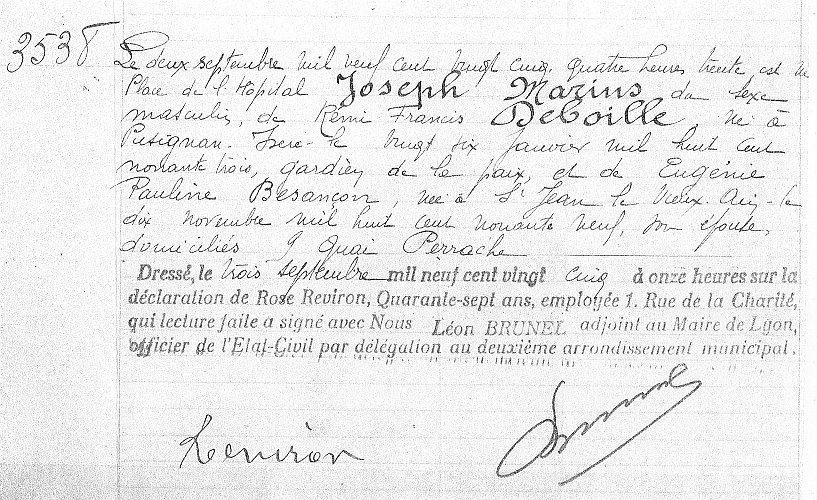 3538
Le deux septembre mil neuf cent vingt cinq, quatre heures trente, est né
Place de l'Hôpital Joseph Marius du sexe
masculin, de Rémi Francis Deboille, né à
Pusignan. Isère - le vingt six janvier mil huit cent
nonante trois, gardien de la paix, et de Eugénie
Pauline Besançon, née à St Jean le Vieux. Ain - le
dix novembre mil huit cent nonante neuf, son épouse,
domiciliés 9 Quai Perrache
Dressé, le trois septembre mil neuf cent vingt cinq à onze heures sur la
déclaration de Rose Reviron, Quarante-sept ans, employée 1. Rue de la Charité,
qui lecture faite a signé avec Nous Léon BRUNEL adjoint au Maire de Lyon,
officier de l'Etat-Civil par délégation au deuxième arrondissement municipal.
Reviron